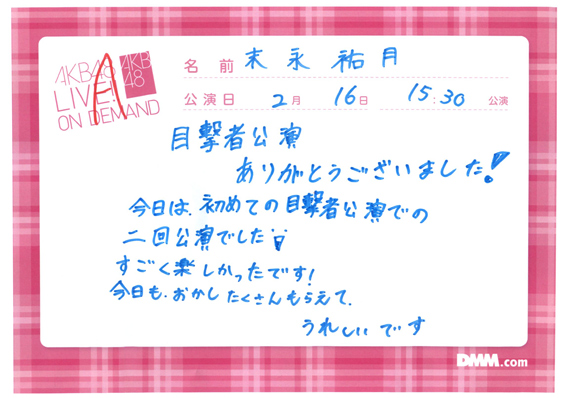 AKB48
LIVE!!
ON DEMAND
AKB
48
A
名前 末永祐月
公演日 2月 16日 15:30 公演
目撃者公演
ありがとうございました!
今日は、初めての目撃者公演での
二回公演でした
すごく楽しかったです!
今日も、おかしたくさんもらえて、
うれしいです
DMM.com